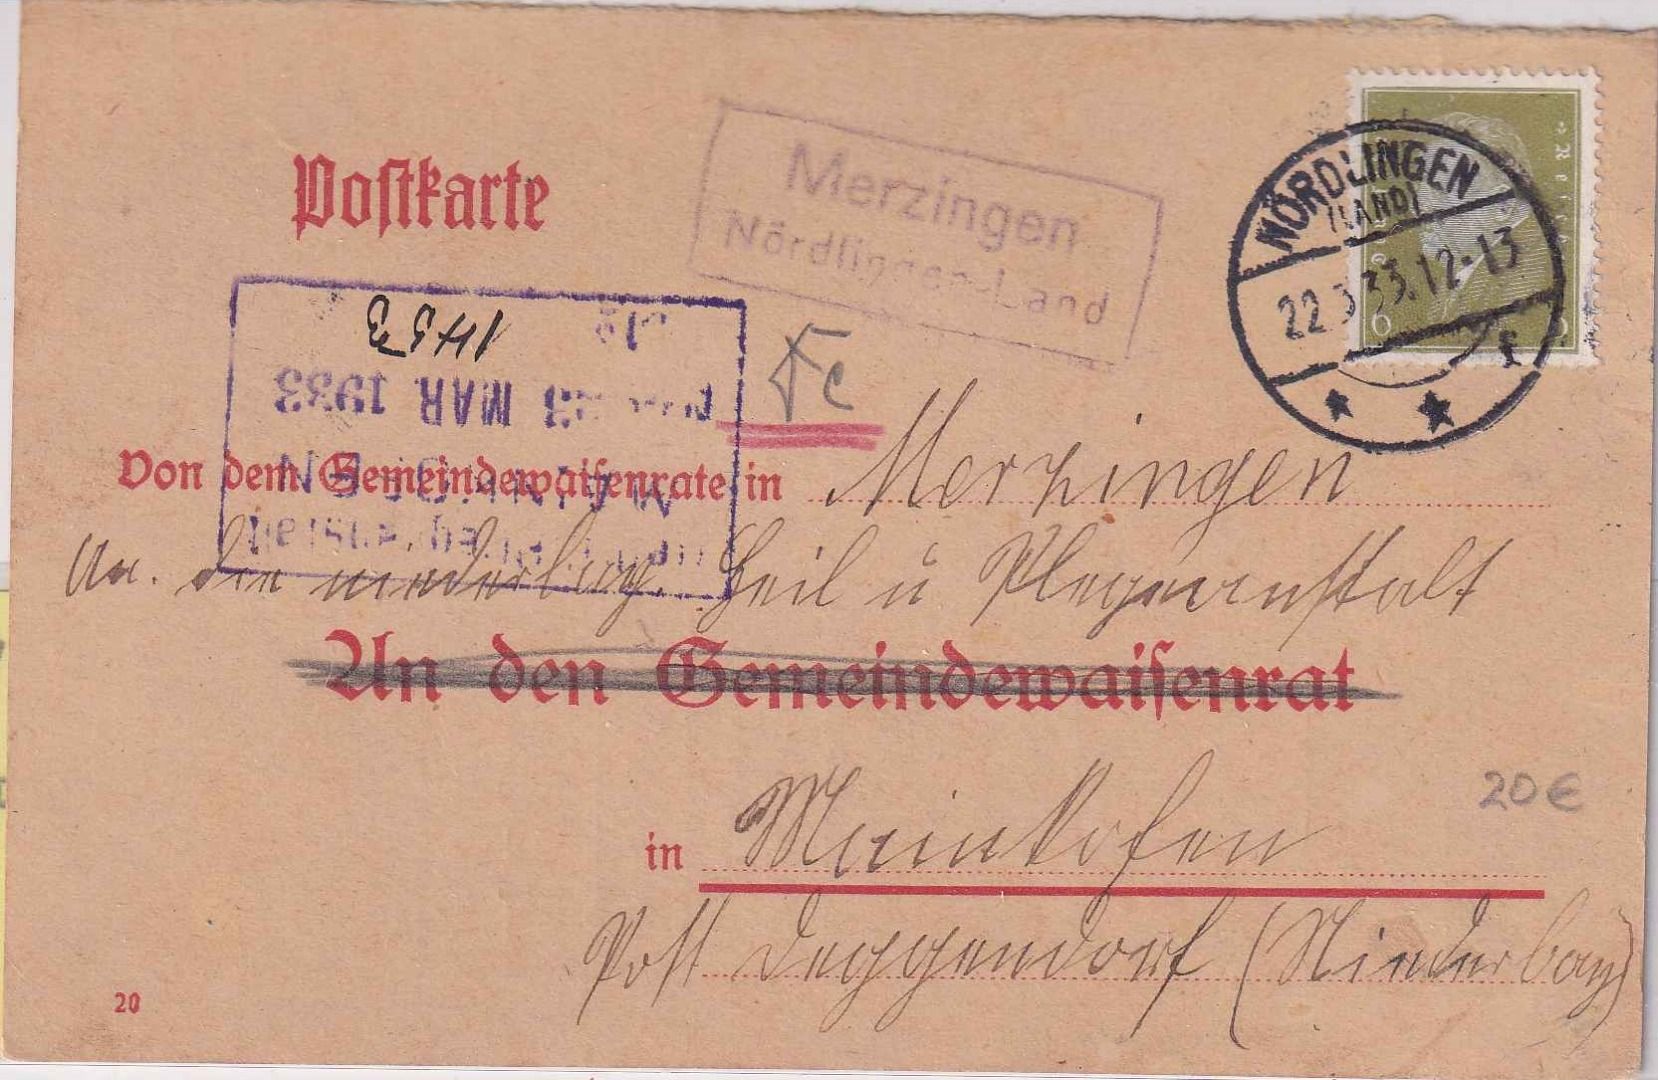 Postkarte
Merzingen
Nördlingen-Land
NÖRDLINGEN
(LAND)
22.3.33.12-13
6
1453
23 MAR 1933
Fe
Von dem Gemeindewaisenrate in Merzingen
An die niederbay. Heil u Plegeanstalt
An den Gemeindewaisenrat
20€
in Mainkofen
Post Deggendorf (Niederbay)
20